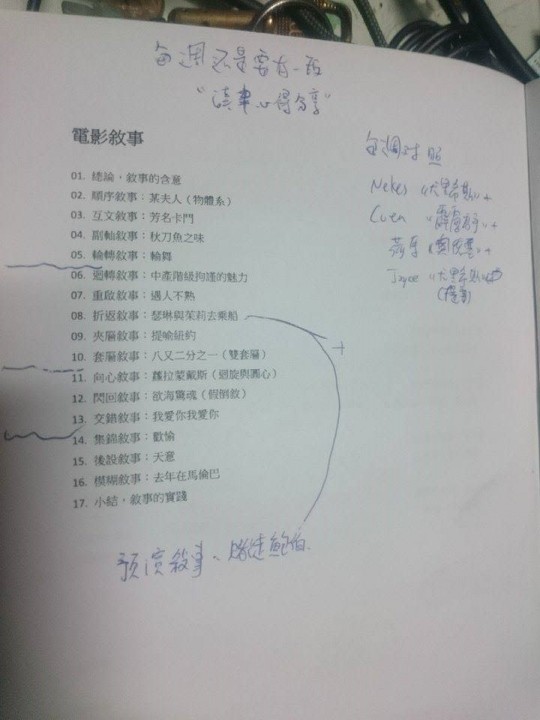 每週還是要有一班
"讀書心得分享"
電影敘事
每週對照
01. 總論，敘事的含意
02. 順序敘事：某夫人（物體系）
03. 互文敘事：芳名卡門
04. 副軸敘事：秋刀魚之味
05. 輪轉敘事：輪舞
06. 迴轉敘事：中產階級拘謹的魅力
07. 重啟敘事：遇人不熟
08. 折返敘事：瑟琳與茱莉去乘船
09. 夾層敘事：提喻紐約
10. 套層敘事：八又二分之一（雙套層）
11. 向心敘事：蘿拉蒙戴斯（迴旋與圓心）
12. 閃回敘事：欲海驚魂（假倒敘）
13. 交錯敘事：我愛你我愛你
14. 集錦敘事：歡愉
15. 後設敘事：天意
16. 模糊敘事：去年在馬倫巴
17. 小結，敘事的實踐
Nekes "尤里希斯" +
Joyce "尤里希斯"
+
預演敘事、賭徒鮑伯